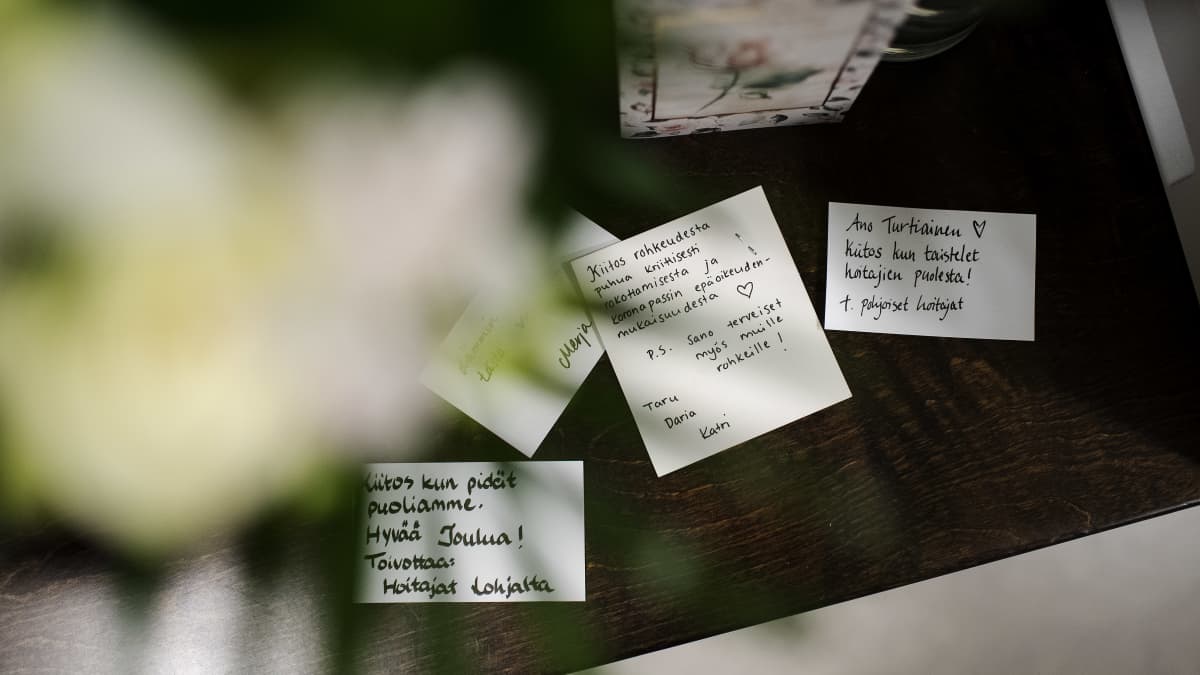 Merja
Kiitos rohkeudesta
puhua kriittisesti !
rokottamisesta ja !
koronapassin epäoikeuden-
mukaisuudesta ♡
P.S. Sano terveiset
myös muille
rohkeille !
Taru
Daria
Katri
Ano Turtiainen ♡
kiitos kun taistelet
hoitajien puolesta!
t. pohjoiset hoitajat
Kiitos kun pidät
puoliamme.
Hyvää Joulua!
Toivottaa:
Hoitajat Lohjalta